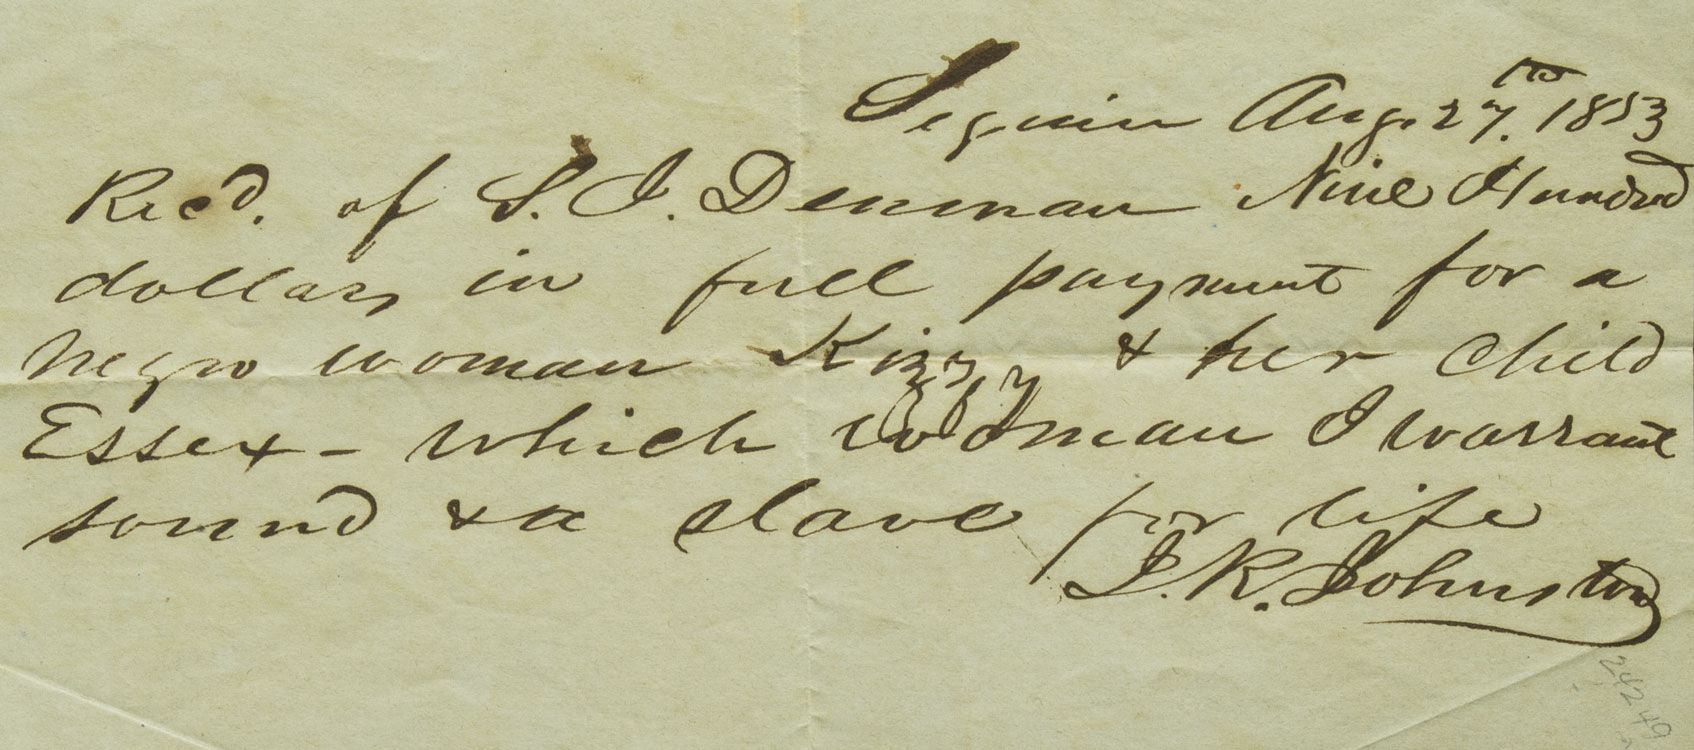 Seguin Aug. 27.th 1853
Recd. of S. J. Denman Nine Hundred
dollars in full payment for a
negro woman Kizzy & her child
Essex - which woman I warrant
sound & a slave for life
J. R. Johnston